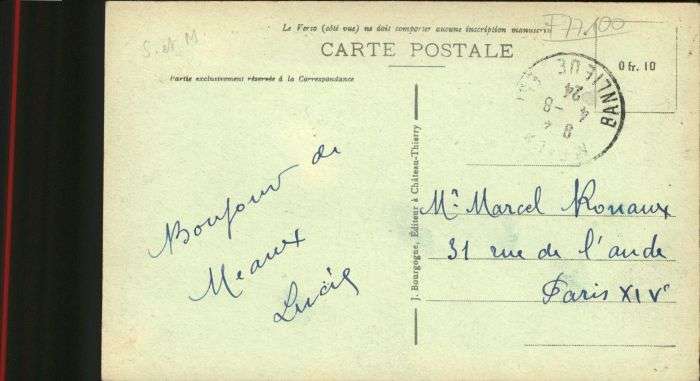 F77100
S. et M.
Le Verso (côté vue) ne doit comporter aucune inscription manuscrite
CARTE POSTALE
Partie exclusivement réservée à la Correspondance
0 fr. 10
BANLIEUE
24
4 - 8
Bonjour de
Meaux
Lucie
J. Bourgogne, Éditeur à Château-Thierry
Mr. Marcel Ronaux
31 rue de l'aude
Paris XIVe